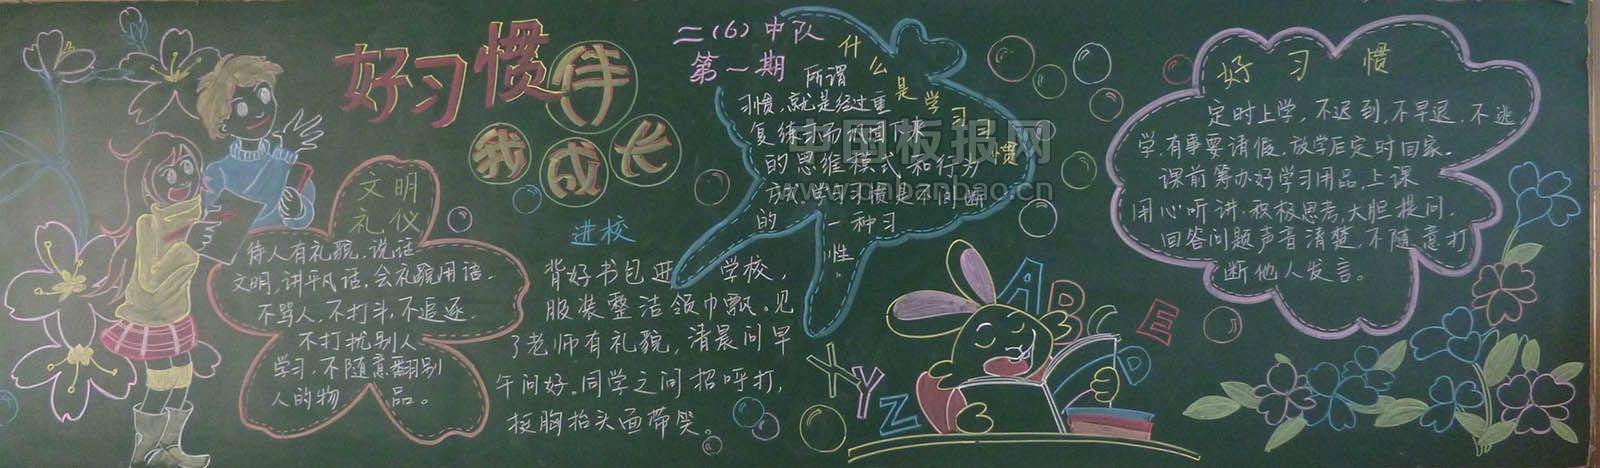 好习惯伴
我成长
二(6)中队
第一期
文明
礼仪
待人有礼貌,说话
文明,讲平凡话,会礼貌用语.
不骂人,不打斗,不追逐
不打扰别人
学习,不随意翻别
人的物品。
进校
背好书包进学校,
服装整洁领巾飘。见
了老师有礼貌,清晨问早
午问好。同学之间招呼打,
挺胸抬头面带笑。
什么是学习习惯
所谓
习惯,就是经过重
复练习而巩固下来
的思维模式和行为
方式学习习惯是不间断
的一种习
性.
中国板报网
www.cnbanbao.cn
A B C D E
X Y Z
好习惯
定时上学,不迟到,不早退,不逃
学,有事要请假,放学后定时回家.
课前筹办好学习用品,上课
用心听讲.积极思考,大胆提问.
回答问题声音清楚,不随意打
断他人发言。